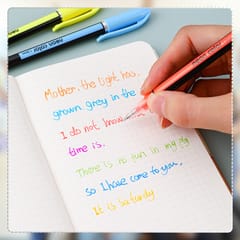 Mother, the light has
grown grey in the
I do not know
time is.
There is no fun in my
so I have come to you,
It is